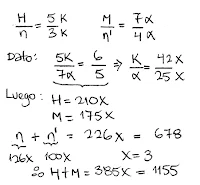 · H/n = 5K/3K   M/n' = 7α/4α
Dato: 5K/7α = 6/5 ⇒ K/α = 42x/25x
Luego: H = 210x
M = 175x
n + n' = 226x = 678
126x 100x x = 3
∴ H+M = 385x = 1155